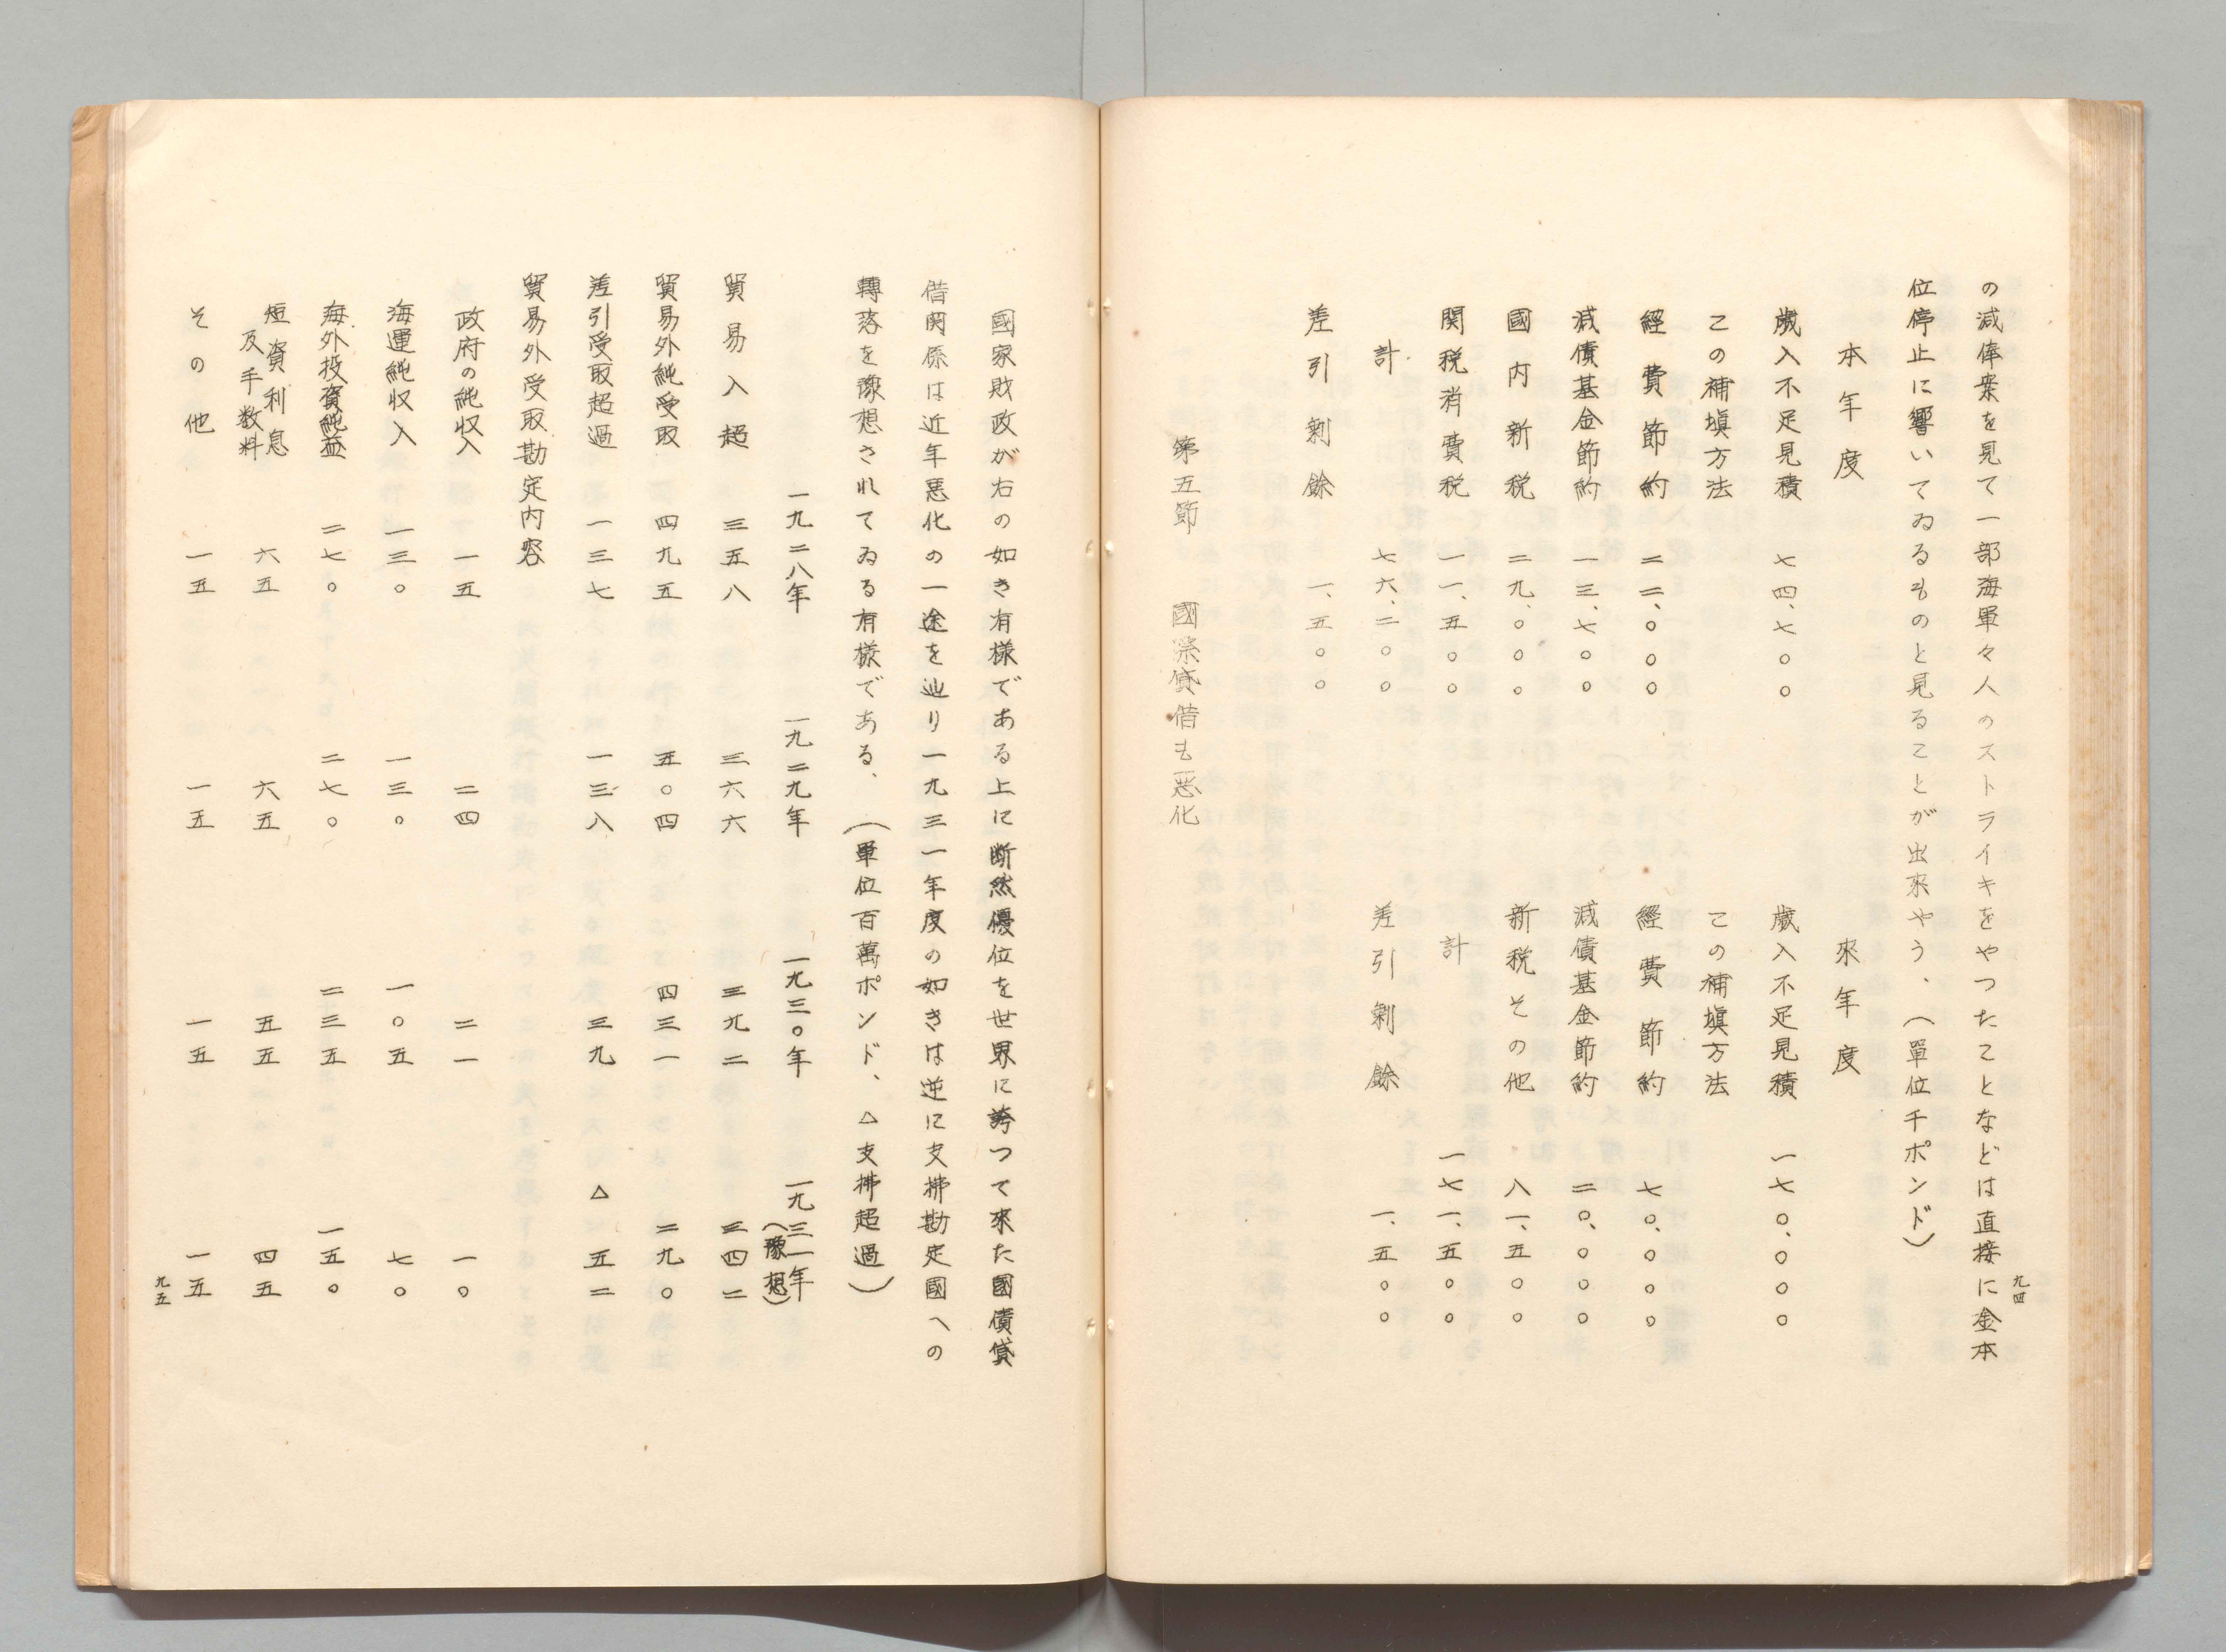 九四
の減俸案を見て一部海軍々人のストライキをやつたことなどは直接に金本
位停止に響いてゐるものと見ることが出來やう、（單位千ポンド）
本年度　來年度
歳入不足見積　七四、七〇〇　歳入不足見積　一七〇、〇〇〇
この補塡方法　この補塡方法
經費節約　二二、〇〇〇　經費節約　七〇、〇〇〇
減債基金節約　一三、七〇〇　減債基金節約　二〇、〇〇〇
國内新税　二九、〇〇〇　新税その他　八一、五〇〇
関税消費税　一一、五〇〇　計　一七一、五〇〇
計　七六、二〇〇　差引剰餘　一、五〇〇
差引剰餘　一、五〇〇
第五節　國際貸借も悪化
國家財政が右の如き有様である上に断然優位を世界に誇つて來た國債貸
借関係は近年悪化の一途を辿り一九三一年度の如きは逆に支拂勘定國への
轉落を豫想されてゐる有様である、（單位百萬ポンド、△支拂超過）
一九二八年　一九二九年　一九三〇年　一九三一年（豫想）
貿易入超　三五八　三六六　三九二　三四二
貿易外純受取　四九五　五〇四　四三一　二九〇
差引受取超過　一三七　一三八　三九　△五二
貿易外受取勘定内容
政府の純収入　一五　二四　二一　一〇
海運純収入　一三〇　一三〇　一〇五　七〇
海外投資純益　二七〇　二七〇　二三五　一五〇
短資利息及手数料　六五　六五　五五　四五
その他　一五　一五　一五　一五
九五